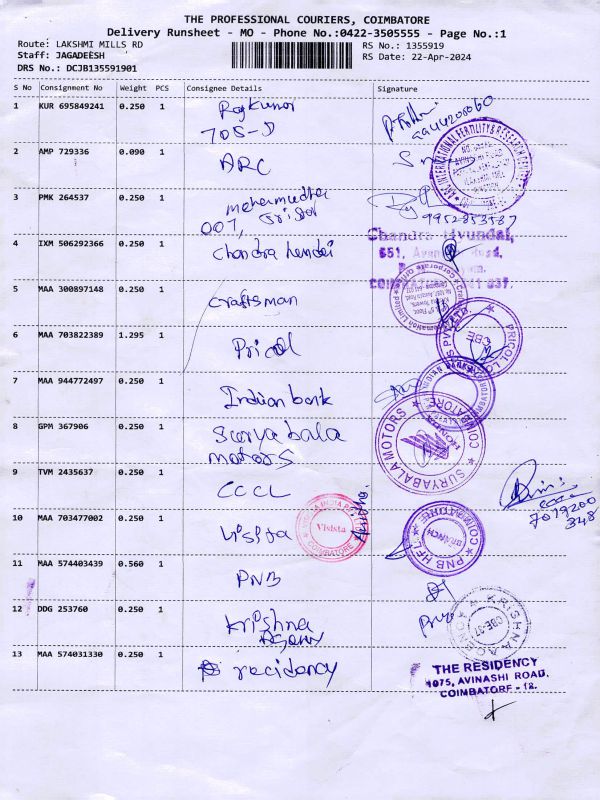 THE PROFESSIONAL COURIERS, COIMBATORE
Delivery Runsheet - MO - Phone No.:0422-3505555 - Page No.:1
Route: LAKSHMI MILLS RD
RS No.: 1355919
Staff: JAGADEESH
RS Date: 22-Apr-2024
DRS No.: DCJB135591901
S No Consignment No Weight PCS Consignee Details Signature
1 KUR 695849241 0.250 1 Rajkumar
705-J
2 AMP 729336 0.090 1 ARC
ARC INTERNATIONAL FERTILITY & RESEARCH CENTRE
3 PMK 264537 0.250 1
007,
9952853587
4 IXM 506292366 0.250 1 Chandra hundai
Chandra Hyundai,
651, Avanashi Road,
5 MAA 300897148 0.250 1 craftsman
6 MAA 703822389 1.295 1 Pricol
CBE
7 MAA 944772497 0.250 1 Indian bank
8 GPM 367906 0.250 1 Surya bala
motors
SURYABALA MOTORS
HONDA
9 TVM 2435637 0.250 1 CCCL
7019200
348
10 MAA 703477002 0.250 1 Visista
VISISTA INDIA
Visista
COIMBATORE
PNB HFL
COIMBATORE
BRANCH
11 MAA 574403439 0.560 1 PNB
12 DDG 253760 0.250 1 Krishna
Agency
KRISHNA AGENCY
CBE-37
13 MAA 574031330 0.250 1 recidency
THE RESIDENCY
1075, AVINASHI ROAD,
COIMBATORE - 18.